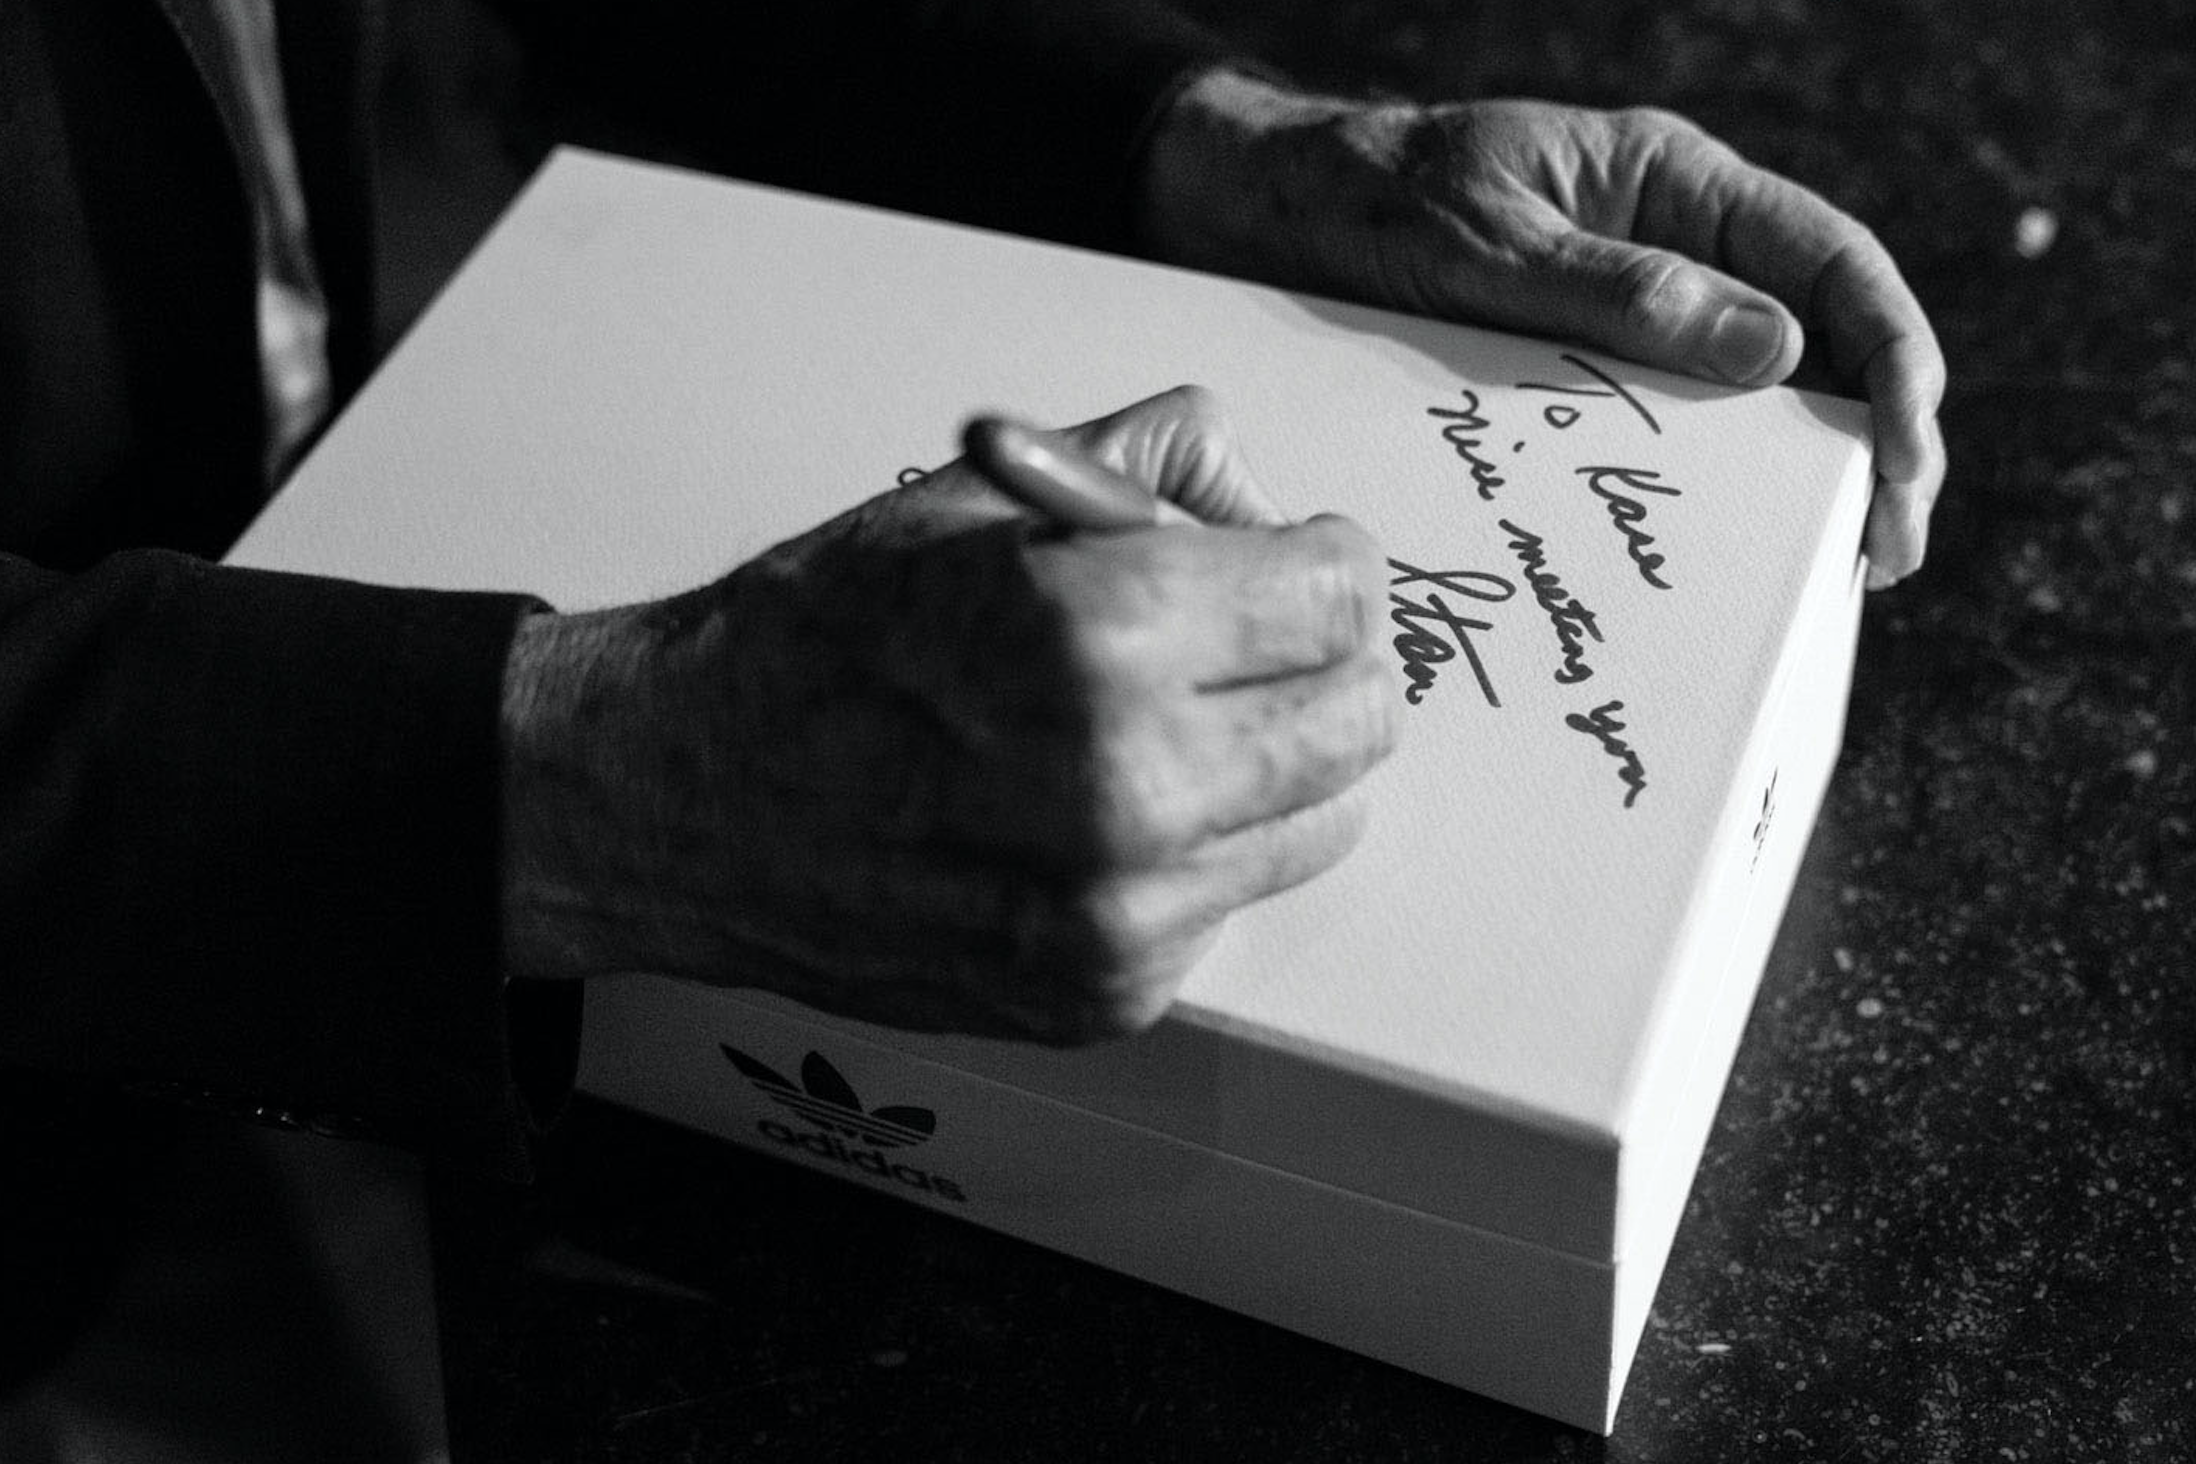 To Kasa
Nice meeting you
Stan
adidas